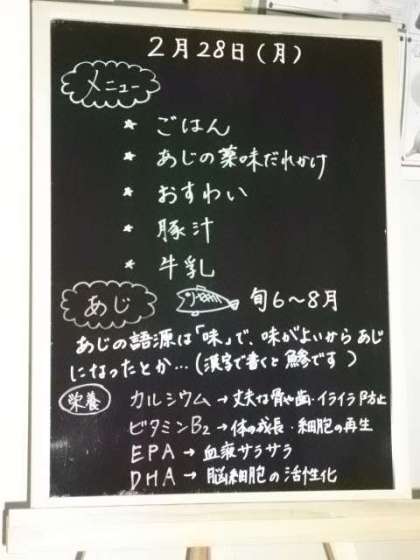 2月28日(月)
メニュー
★ ごはん
★ あじの薬味だれかけ
★ おすわい
★ 豚汁
★ 牛乳
あじ 旬6～8月
あじの語源は「味」で、味がよいから あじ
になったとか…(漢字で書くと 鯵です)
栄養 カルシウム→丈夫な骨や歯・イライラ防止
ビタミンB2→体の成長・細胞の再生
EPA→血液サラサラ
DHA→脳細胞の活性化